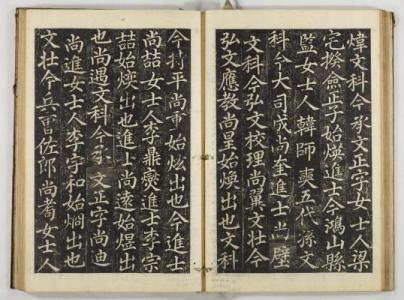 煒文科今承文正字女士人梁
宅揆僉正子始煐進士今鴻山縣
監女士人韓師奭五代孫文
科今大司成尚奎進士尚璧
文科今弘文校理尚翼文壮今
弘文應教尚星始煥出也文科
今持平尚重始炫出也今進士
尚喆女士人李鼎爕進士李宗
喆始煐出也進士尚遠始煜出
也尚遇文科今承文正字尚迪
尚進女士人李宇和始烱出也
文壮今兵曺佐郎尚耉女士人